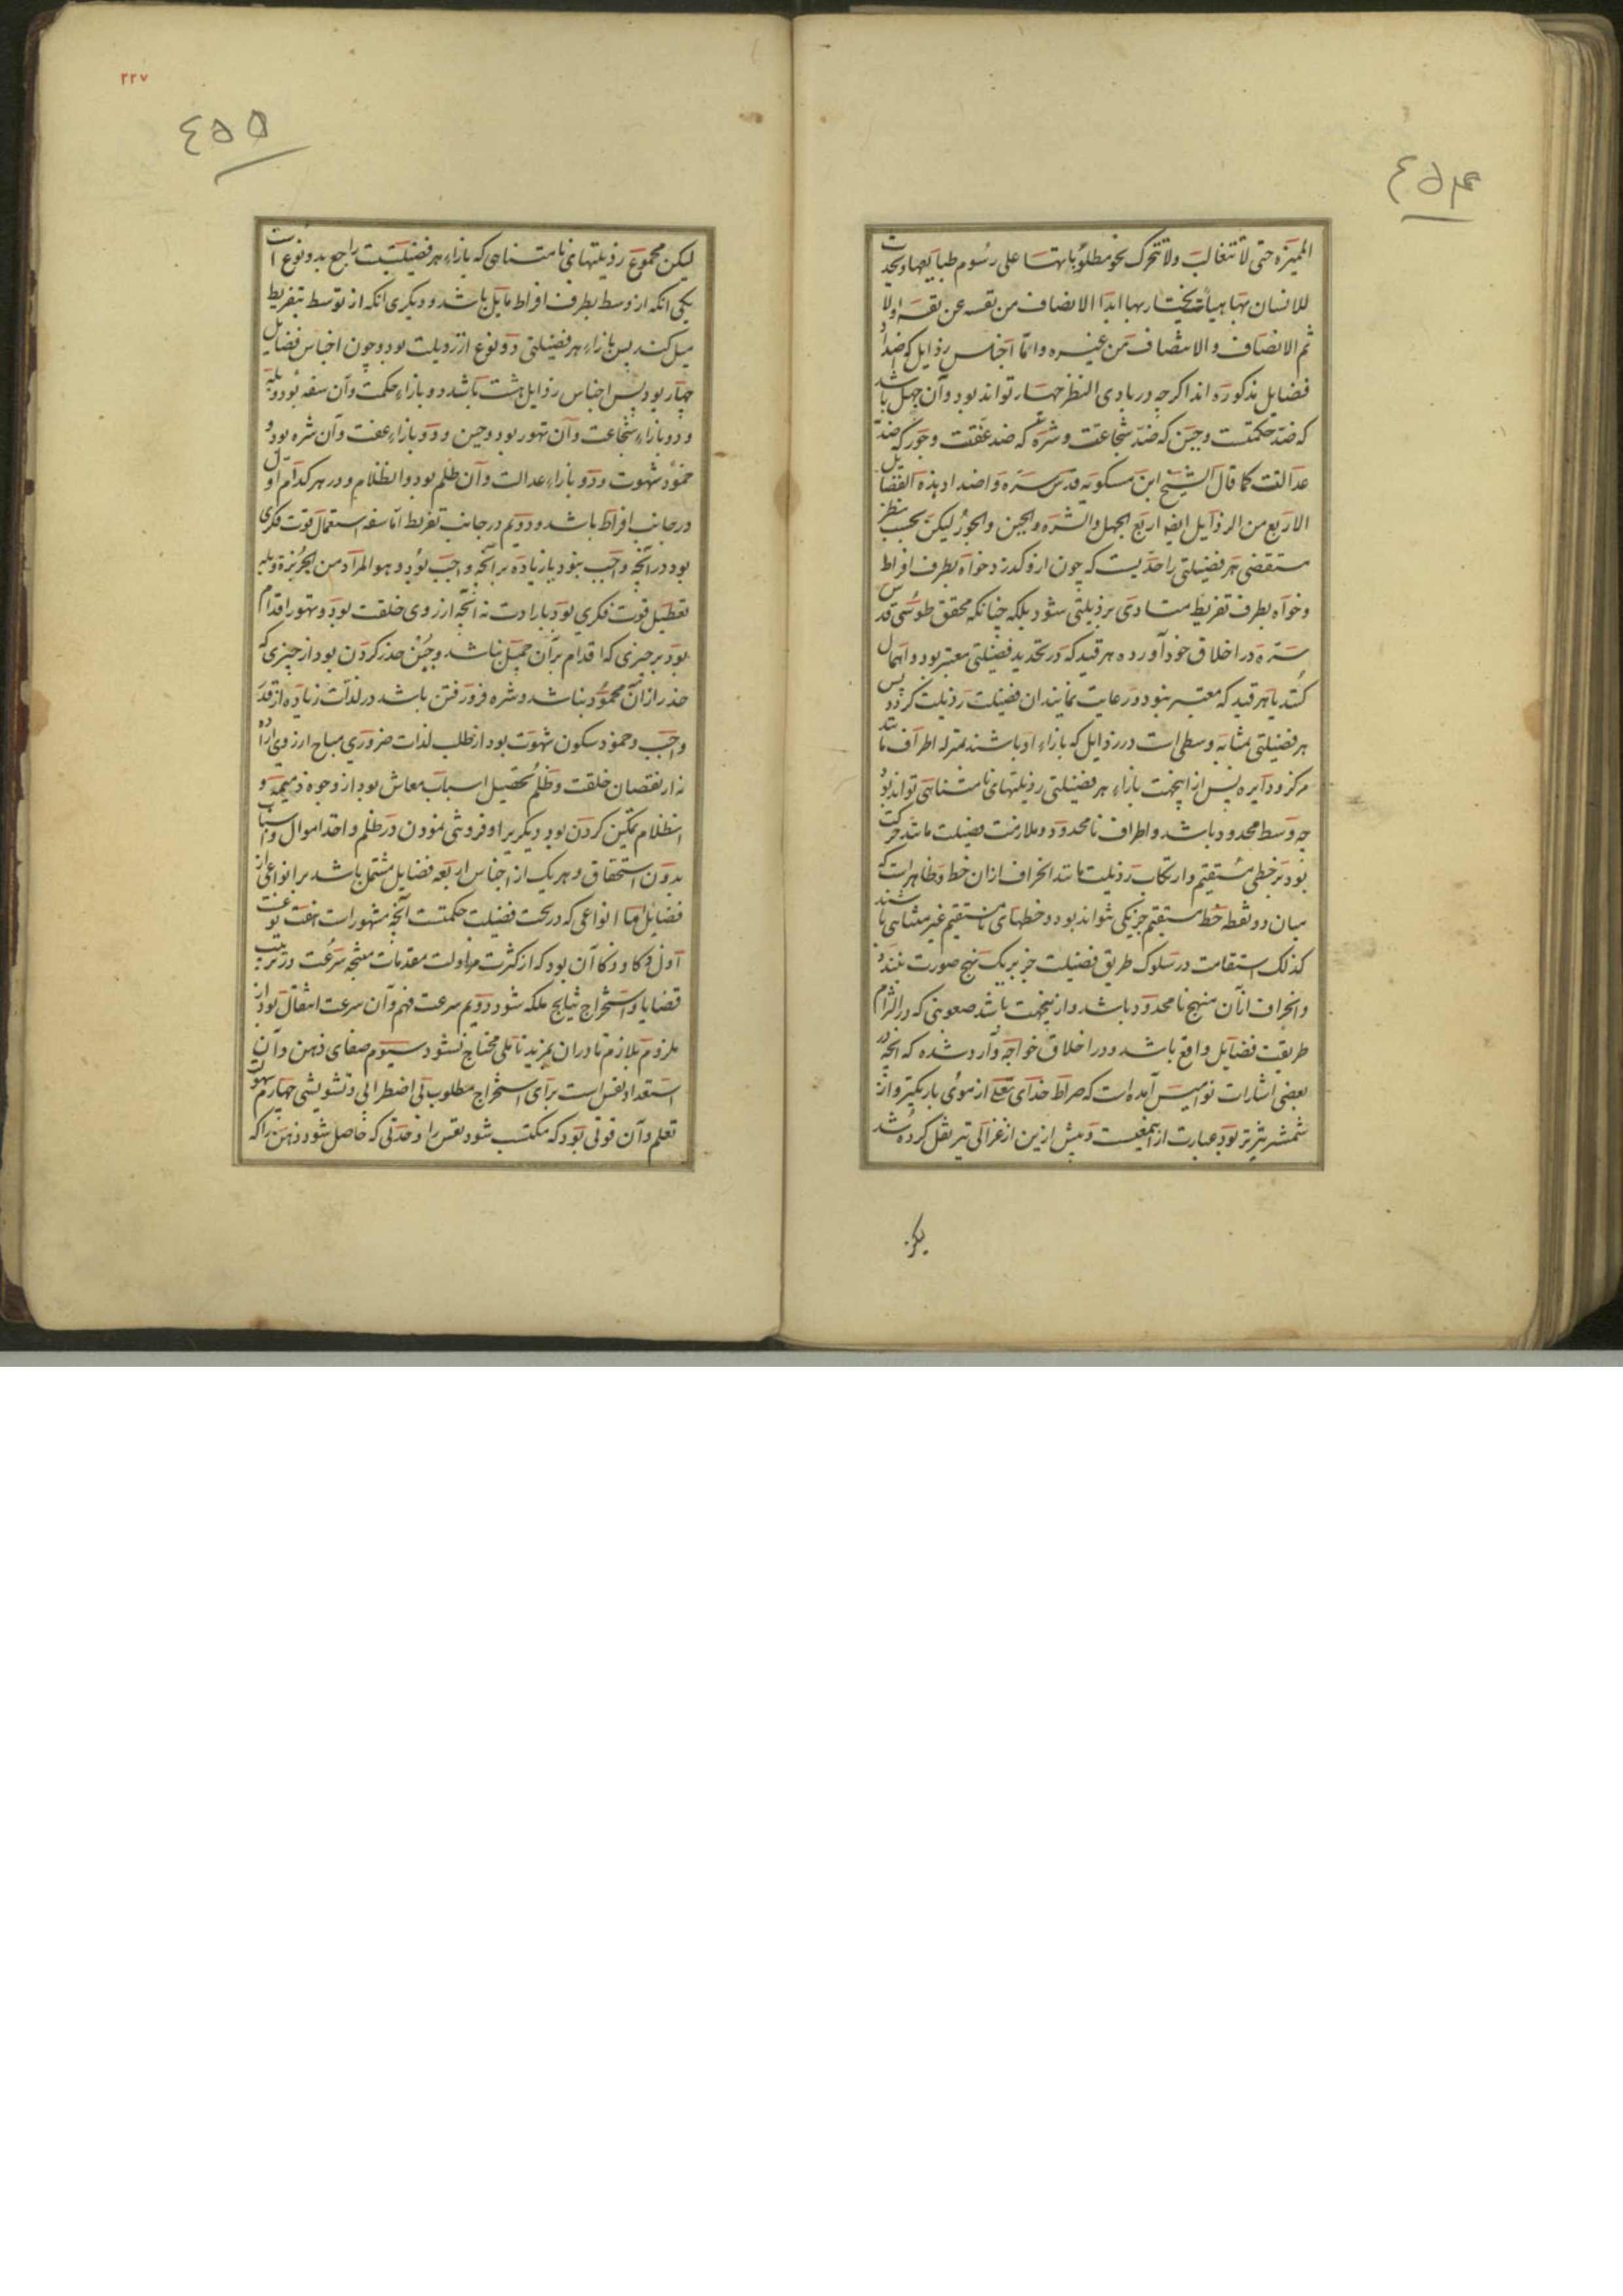 ٤٥٤
المیزه حتی لا تتغالب ولا تتحرک نحو مطلوباتها علی رسوم طبایعها و یحدث
للانسان بها هیأت یختار بها ابدا الانصاف من نفسه عن نفسه اولا
ثم الانصاف و الانتصاف من غیره و اما اجناس رذایل که اضداد
فضایل مذکوره اند اگرچه در بادی النظر چهار تواند بود و آن جهل باشد
که ضد حکمتست و جبن که ضد شجاعتست و شره که ضد عفتست و جور که ضد
عدالتست کما قال الشیخ ابن مسکویه قدس سره و اضداد هذه الفضایل
الاربع من الرذایل ایضا اربع الجهل و الشره و الجبن و الجور لیکن بحسب نظر
مستقصی هر فضیلتی را حدیست که چون ازو گذرد خواه بطرف افراط
و خواه بطرف تفریط متادی برذیلتی شود بلکه چنانکه محقق طوسی قدس
سره در اخلاق خود آورده هر قید که در تحدید فضیلتی معتبر بود و اهمال
کنند یا هر قید که معتبر نبود و رعایت نمایند ان فضیلت رذیلت گردد پس
هر فضیلتی بمثابه وسطی است و رذایل که بازاء او باشند بمنزله اطراف مانند
مرکز و دایره پس از اینجهت بازاء هر فضیلتی رذیلتهای نامتناهی تواند بود
چه وسط محدود باشد و اطراف نامحدود و ملازمت فضیلت مانند حرکت
بود بر خطی مستقیم و ارتکاب رذیلت مانند انحراف ازان خط و ظاهر است که
میان دو نقطه خط مستقیم جز یکی نتواند بود و خطهای نامستقیم غیر متناهی باشند
کذلک استقامت در سلوک طریق فضیلت جز بر یک نهج صورت نبندد
و انحراف از آن منهج نامحدود باشد و از ینجهت باشد صعوبتی که در التزام
طریقت فضایل واقع باشد و در اخلاق خواجه وارد شده که انچه در
بعضی اشارات نوامیس آمده است که صراط خدای تعالی از موی باریکتر و از
شمشیر تیزتر بود عبارت از ینمعنیست و پیش ازین از غزالی نیز نقل کرده شد
لیکن
٢٢٧
٤٥٥
لیکن مجموع رذیلتهای نامتناهی که بازاء هر فضیلتیست راجع بدو نوع است
یکی انکه از وسط بطرف افراط مایل باشد و دیگری انکه از توسط بتفریط
میل کند پس بازاء هر فضیلتی دو نوع از رذیلت بود و چون اجناس فضایل
چهار بود پس اجناس رذایل هشت باشد دو بازاء حکمت و آن سفه بود و بله
و دو بازاء شجاعت و آن تهور بود و جبن و دو بازاء عفت و آن شره بود و
خمود شهوت و دو بازاء عدالت و آن ظلم بود و انظلام و در هر کدام اول
در جانب افراط باشد و دویم در جانب تفریط اما سفه استعمال قوت فکری
بود در آنچه واجب نبود یا زیاده بر آنچه واجب بود و هو المراد من الجربزة و بله
تعطیل قوت فکری بود بارادت نه انچه از روی خلقت بود و تهور اقدام
بود بر چیزی که اقدام بر آن جمیل نباشد و جبن حذر کردن بود از چیزی که
حذر از ان محمود نباشد و شره فرو رفتن باشد در لذات زیاده از قدر
واجب و خمود سکون شهوت بود از طلب لذات ضروری مباح از روی اراده
نه از نقصان خلقت و ظلم تحصیل اسباب معاش بود از وجوه ذمیمه و
انظلام تمکین کردن بود دیگریرا و فروتنی نمودن در ظلم و اخذ اموال و اسباب
بدون استحقاق و هر یک از اجناس اربعه فضایل مشتمل باشد بر انواعی از
فضایل اما انواعی که در تحت فضیلت حکمتست آنچه مشهور است هفت نوعست
اول ذکا و ذکا آن بود که از کثرت مزاولت مقدمات منتجه سرعت در ترتیب
قضایا و استخراج نتایج ملکه شود دویم سرعت فهم و آن سرعت انتقال بود از
ملزوم بلازم تا در ان بمزید تاملی محتاج نشود سیوم صفای ذهن و آن
استعداد نفس است برای استخراج مطلوب بی اضطرابی و تشویشی چهارم سهولت
تعلم و آن قوتی بود که مکتسب شود نفس را و حدتی که حاصل شود ذهن را که